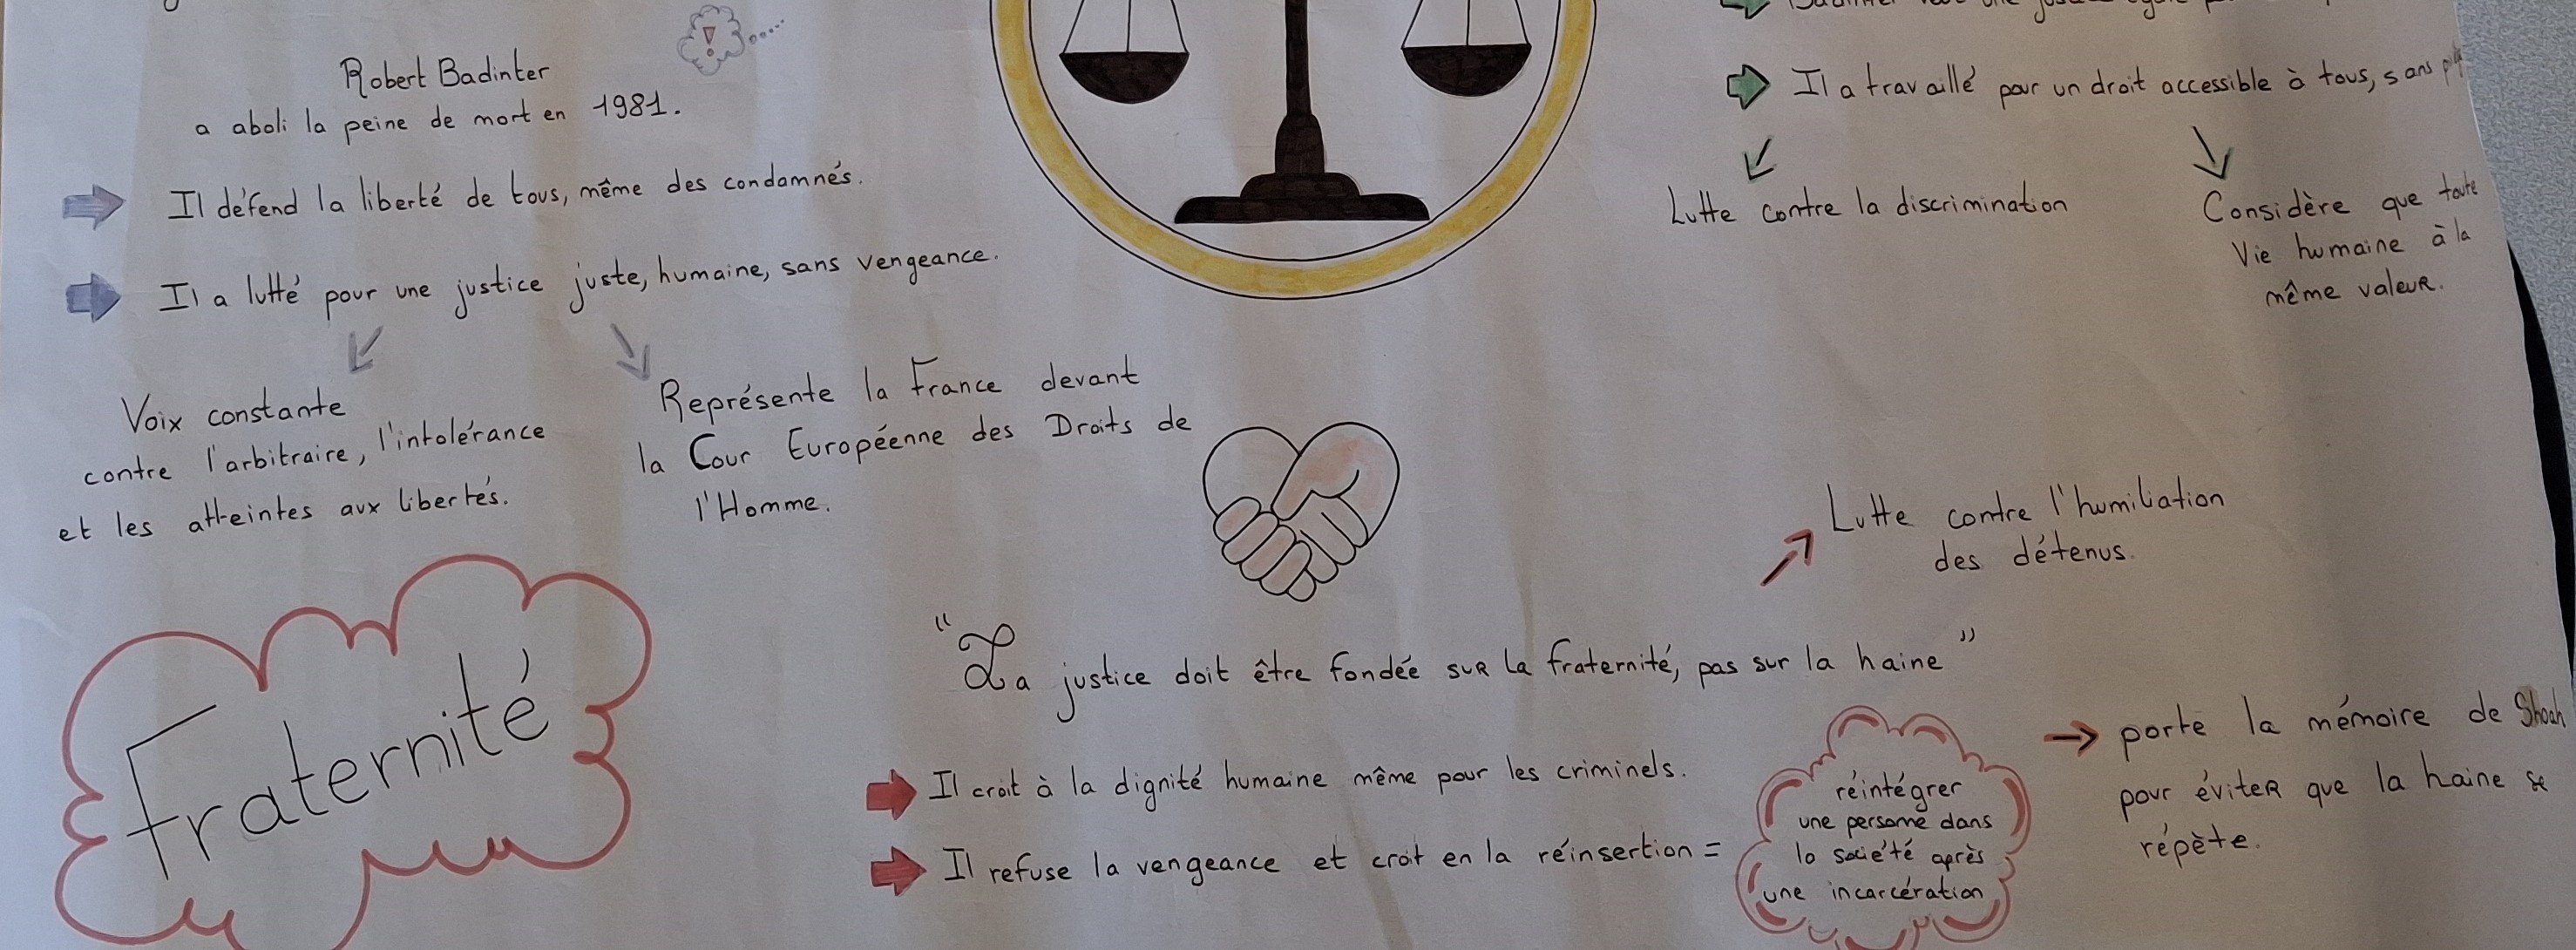 Robert Badinter
a aboli la peine de mort en 1981.
Il défend la liberté de tous, même des condamnés.
Il a lutté pour une justice juste, humaine, sans vengeance.
Voix constante
contre l'arbitraire, l'intolérance
et les atteintes aux libertés.
Représente la France devant
la Cour Européenne des Droits de
l'Homme.
Il a travaillé pour un droit accessible à tous, sans
Lutte contre la discrimination
Considère que toute
Vie humaine à la
même valeur.
Fraternité
Lutte contre l'humiliation
des détenus.
"La justice doit être fondée sur la fraternité, pas sur la haine"
Il croit à la dignité humaine même pour les criminels.
Il refuse la vengeance et croit en la réinsertion =
réintégrer
une personne dans
la société après
une incarcération
porte la mémoire de Shoah
pour éviter que la haine se
répète.